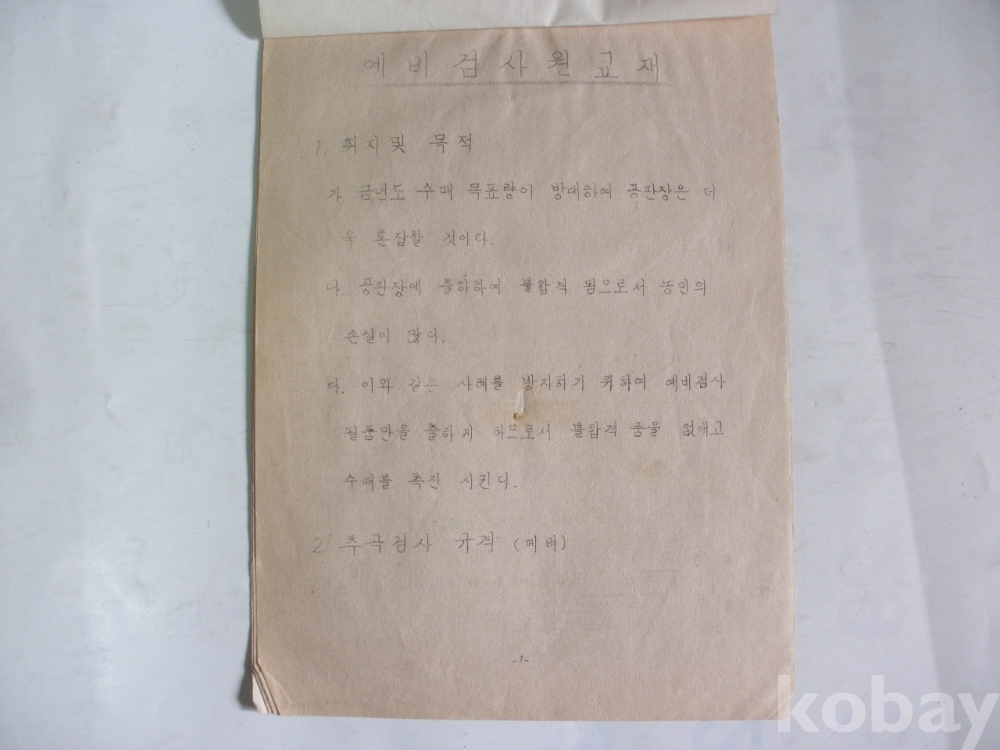 예비검사원교재
1. 취지및 목적
가 금년도 수매 목표량이 방대하여 공판장은 더
욱 혼잡할 것이다.
나. 공판장에 출하하여 불합격 됨으로서 농민의
손실이 많다.
다. 이와 같은 사례를 방지하기 위하여 예비검사
필품만을 출하게 하므로서 불합격 품을 없애고
수매를 촉진 시킨다.
2 추곡검사 규격
-1-
kobay